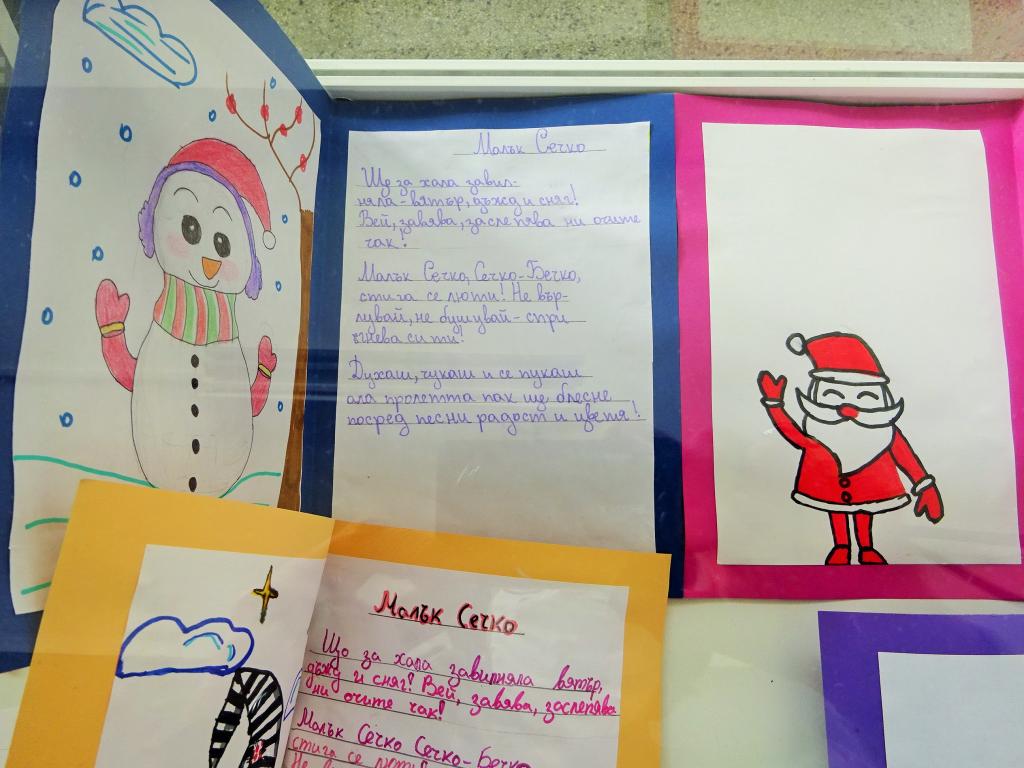 Малък Сечко
Що за хала завил-
няла-вятър, дъжд и сняг!
Вей, завява, заслепява ни очите
чак!
Малък Сечко, Сечко-Бечко,
стига се люти! Не вър-
лувай, не бушувай-спри
гнева си ти!
Духаш, чукаш и се пукаш
ала пролетта пак ще блесне
посред песни радост и цветя!
Малък Сечко
Що за хала завилняла вятър,
дъжд и сняг! Вей, завява, заслепява
ни очите чак!
Малък Сечко Сечко-Бечко
стига се люти!
Не